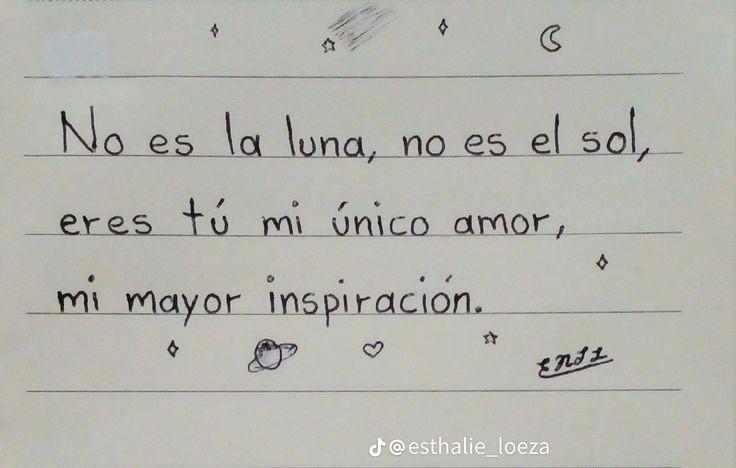 No es la luna, no es el sol,
eres tú mi único amor,
mi mayor inspiración.
@esthalie_loeza